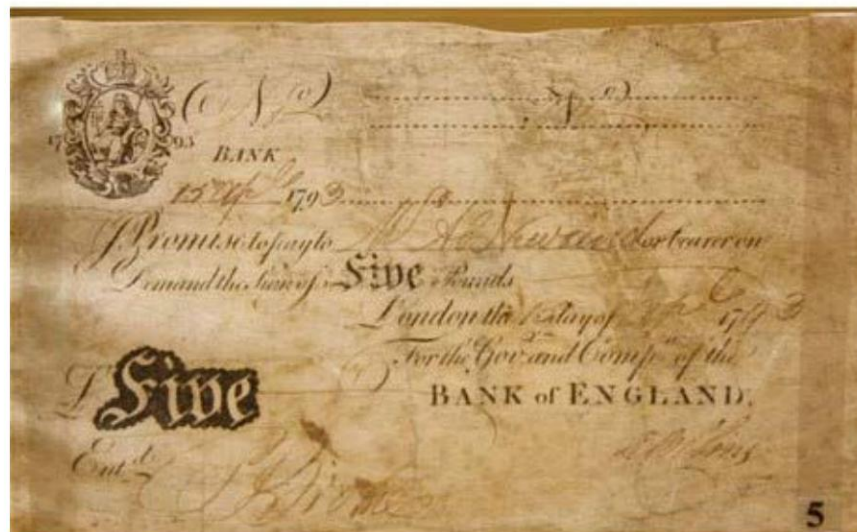 No
17 93
BANK
15 Apl 1793
I Promise to pay to Mr Ab. Newland or bearer on
Demand the Sum of Five Pounds
London the 15 day of Apl 1793
For the Govr. and Compa. of the
£ Five
BANK of ENGLAND.
Entd.
5